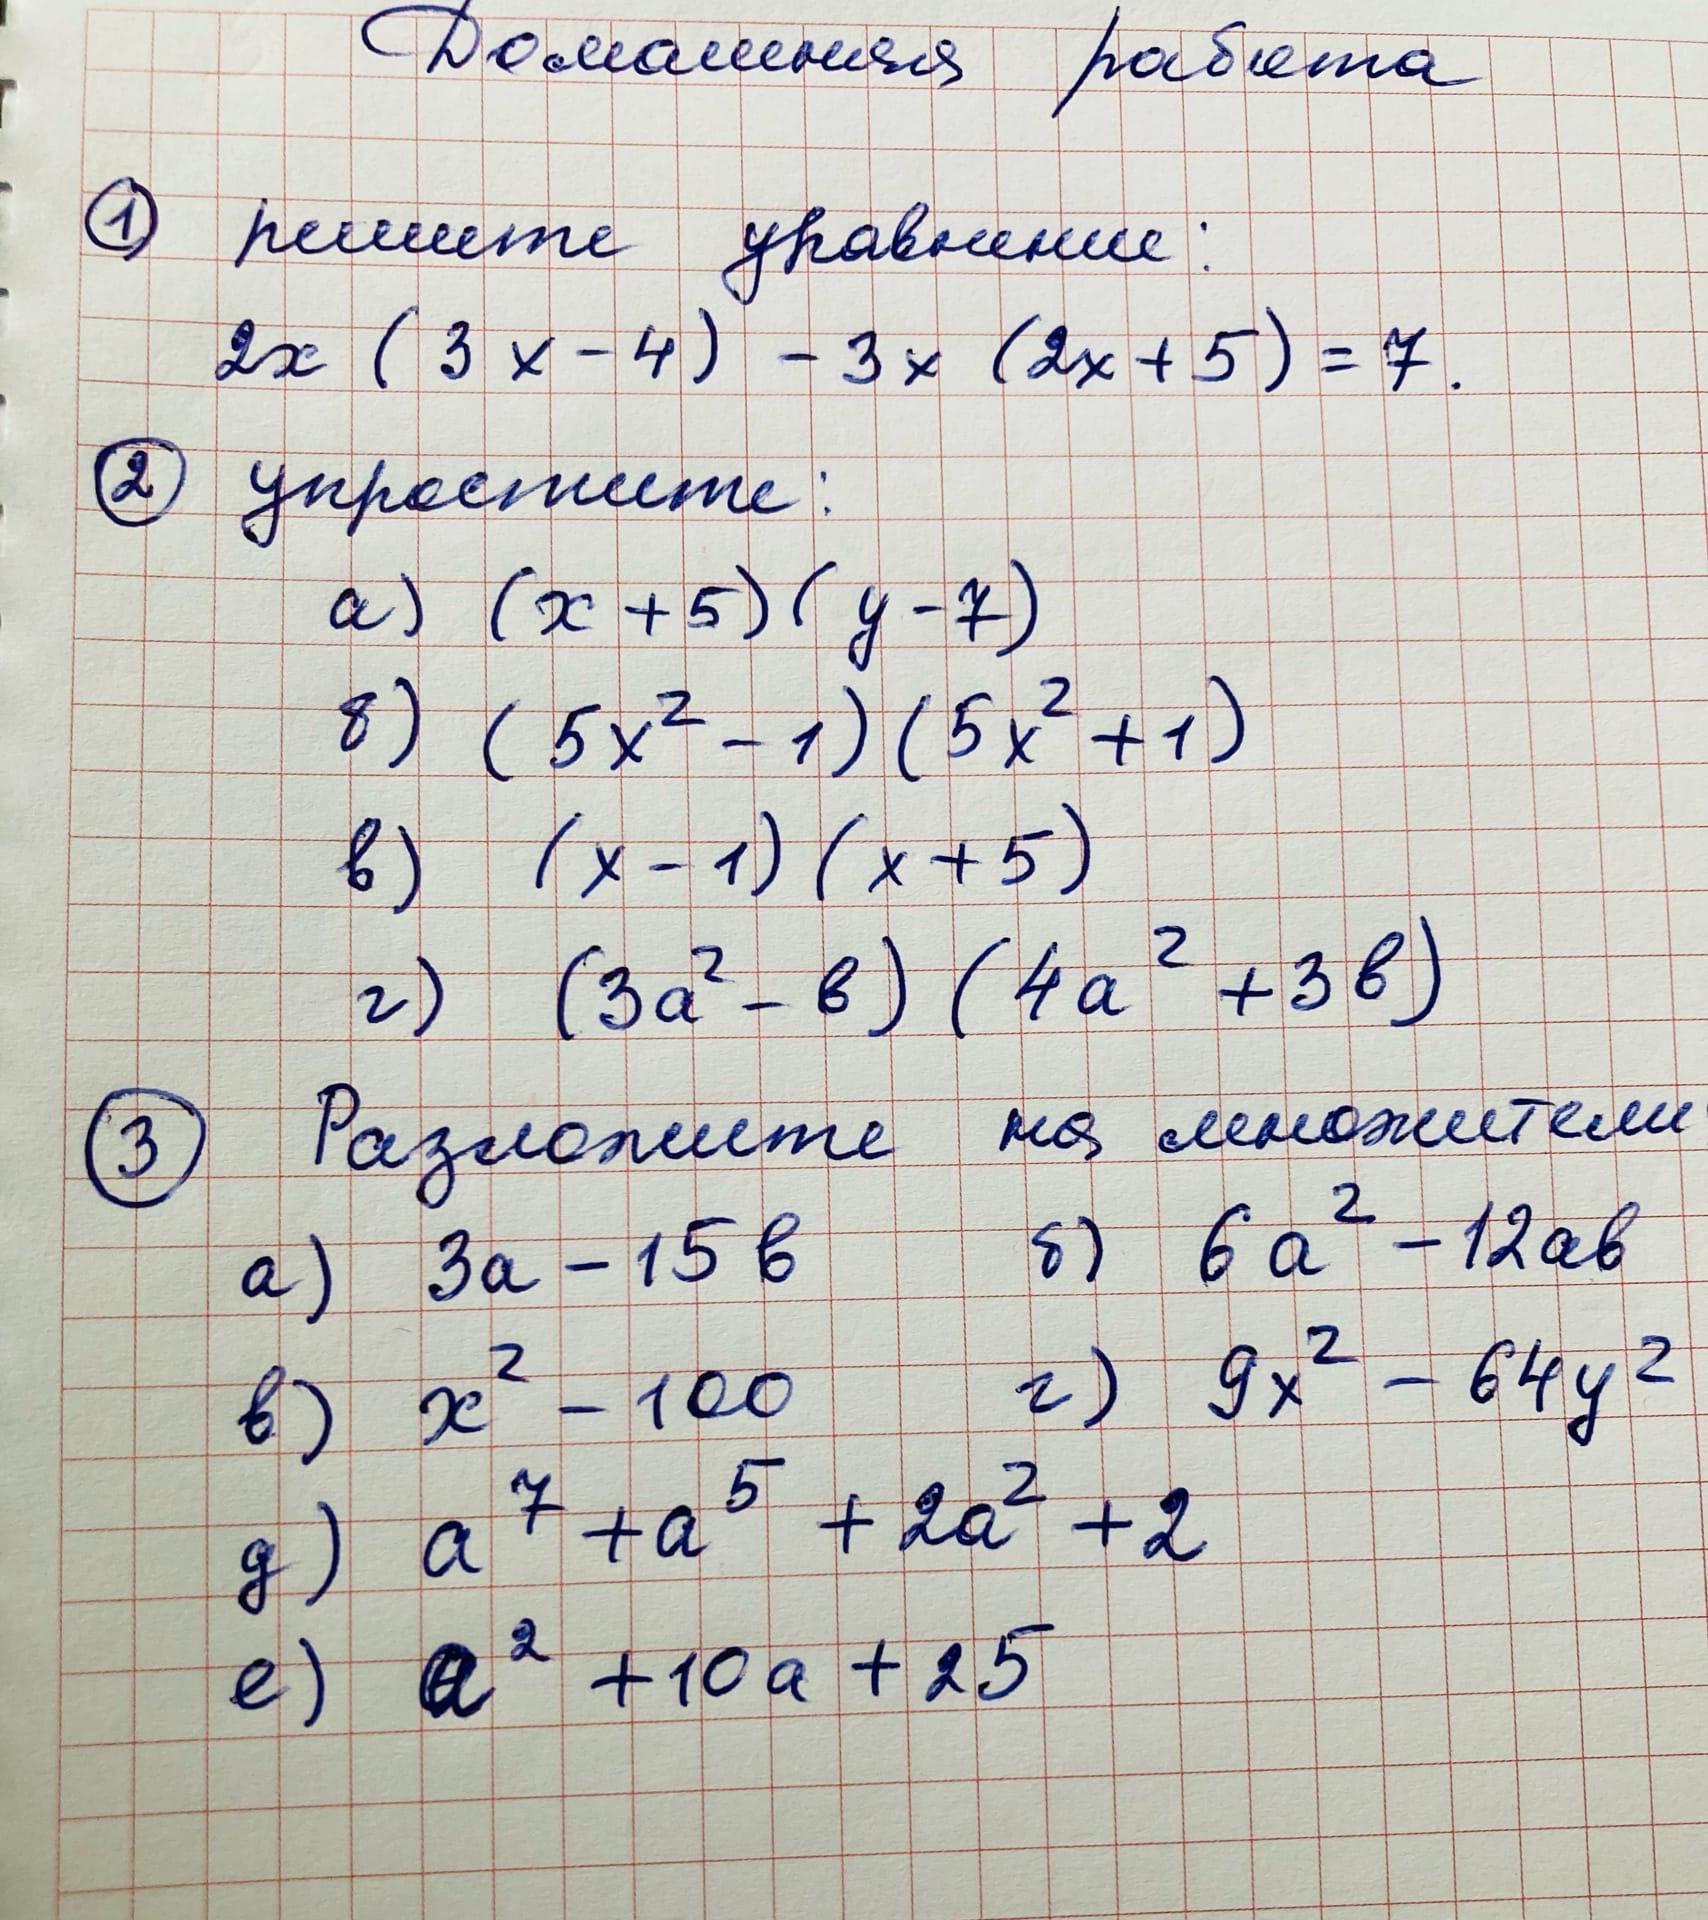 Домашняя работа
① решите уравнение:
2x (3x - 4) - 3x (2x + 5) = 7.
② упростите:
а) (x + 5)(y - 7)
б) (5x² - 1)(5x² + 1)
в) (x - 1)(x + 5)
г) (3a² - в)(4a² + 3в)
③ Разложите на множители
а) 3a - 15в б) 6a² - 12aв
в) x² - 100 г) 9x² - 64y²
д) a⁷ + a⁵ + 2a² + 2
е) a² + 10a + 25